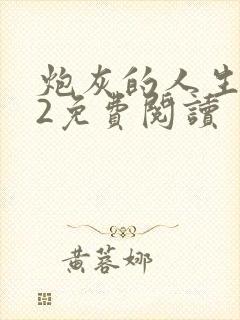 炮灰的人生
2免費閱讀
黃蓉娜